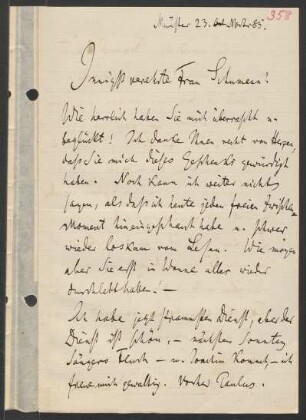 358
Münster 23. Novbr 85.
Innigst verehrte Frau Schumann!
Wie herrlich haben Sie mich überrascht u.
beglückt! Ich danke Ihnen recht von Herzen,
daß Sie mich dieses Geschenks gewürdigt
haben. Noch kann ich weiter nichts
sagen, als daß ich heute jeden freien Zwischen-
Moment hineingeschaut habe u. schwer
wieder loskam vom Lesen. Wie mögen
aber Sie erst in Wonne alles wieder
durchlebt haben! —
Ich habe jetzt strammsten Dienst, aber der
Dienst ist schön, — nächsten Sonntag
Sängers Fluch — u. Joachim kommt — ich
freue mich gewaltig. Vorher Paulus.